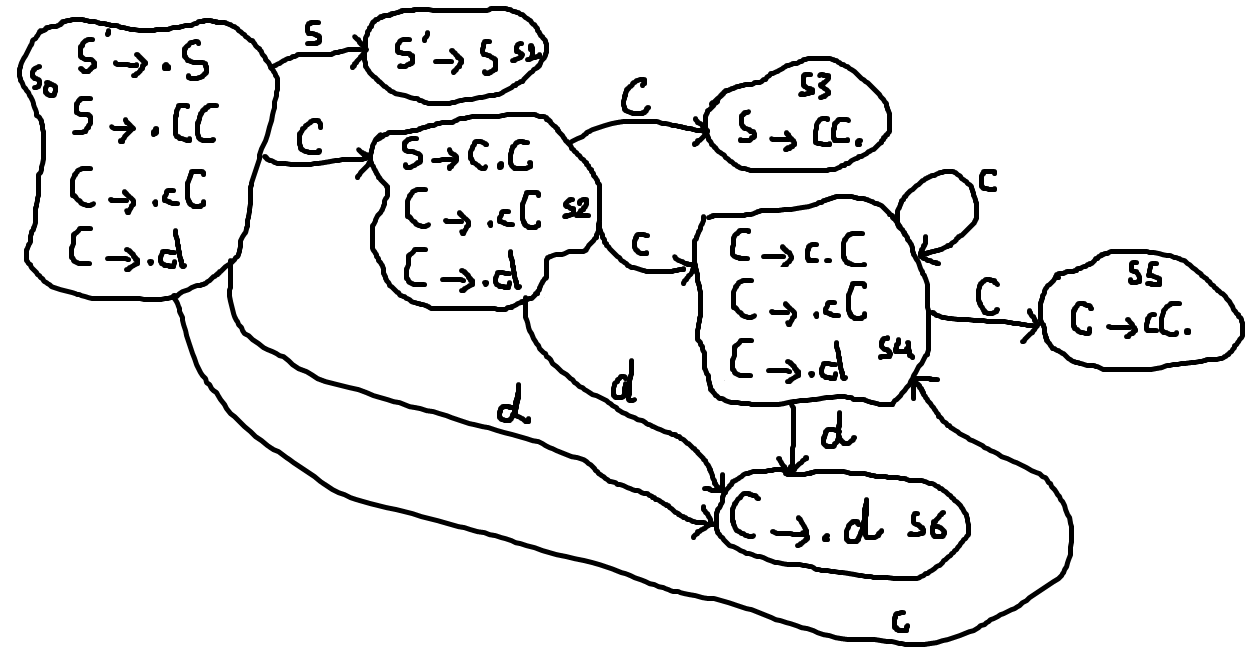 S' → .S
S0
S → .CC
C → .cC
C → .d
S
S' → S S1
C
S → C.C
C → .cC S2
C → .d
C
S3
S → CC.
c
c
C → c.C
C → .cC
C → .d S4
C
S5
C → cC.
d
d
d
C → .d S6
c